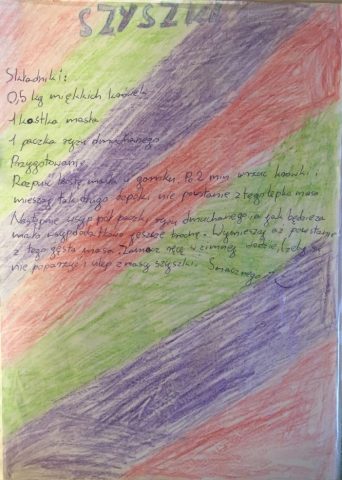 SZYSZKI
Składniki:
0,5 kg miękkich krówek
1 kostka masła
1 paczka ryżu dmuchanego
Przygotowanie
Rozpuść kostę masła w garnku. Po 2 min wrzuć krówki i
mieszaj tak długo dopóki nie powstanie z tego lepka masa
Następnie wsyp pół paczki ryżu dmuchanego ja jak będzie za
mało wsyp dodatkowo jeszcze trochę. Wymieszaj aż powstanie
z tego gęsta masa. Zamocz ręce w zimnej wodzie, żeby się
nie poparzyć i ulep z masy szyszki. Smacznego